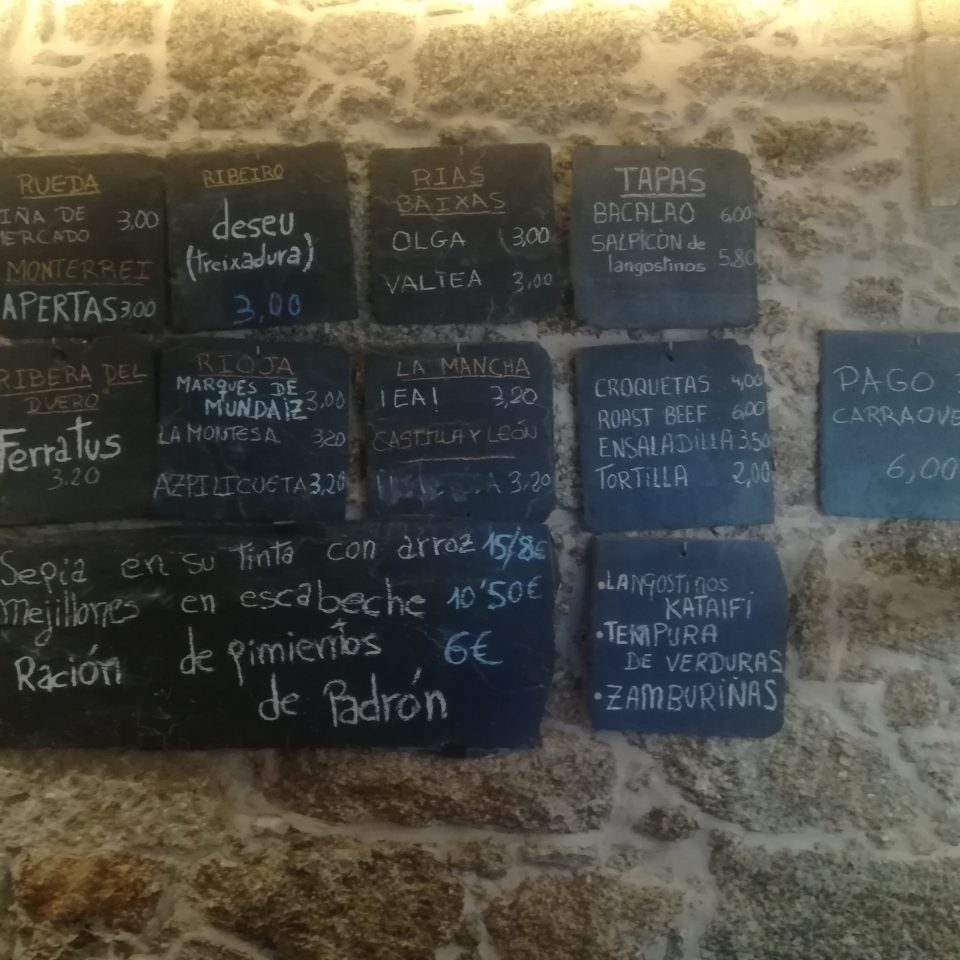 RUEDA
IÑA DE 3,00
ERCADO
MONTERREI
APERTAS 3,00
RIBEIRO
deseu
(treixadura)
3,00
RIAS
BAIXAS
OLGA 3,00
VALTEA 3,00
TAPAS
BACALAO 6,00
SALPICÒN de
langostinos 5,80
RIBERA DEL
DUERO
Ferratus
3.20
RIOJA
MARQUES DE
MUNDAIZ 3,00
LA MONTESA 3,20
AZPILICUETA 3,20
LA MANCHA
¡EA! 3,20
CASTILLA Y LEÓN
3,20
CROQUETAS 4,00
ROAST BEEF 6,00
ENSALADILLA 3,50
TORTILLA 2,00
PAGO
CARRAOVE
6,00
Sepia en su tinta con arroz 15/8€
mejillones en escabeche 10'50€
Ración de pimientos 6€
de Padrón
•LANGOSTINOS
KATAIFI
•TEMPURA
DE VERDURAS
•ZAMBURIÑAS